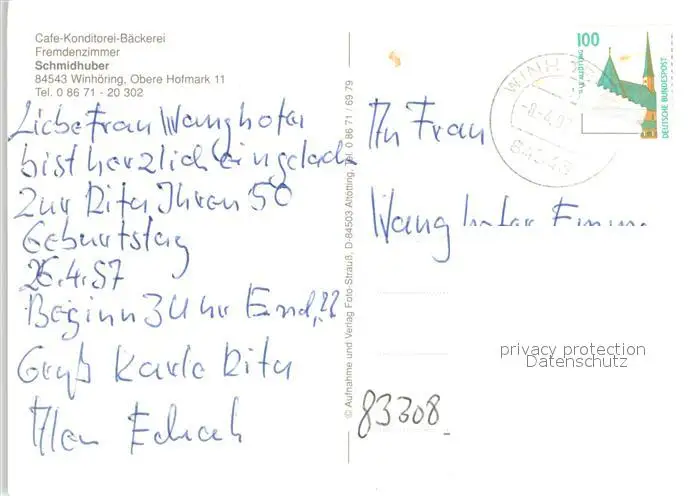 Cafe-Konditorei-Bäckerei
Fremdenzimmer
Schmidhuber
84543 Winhöring, Obere Hofmark 11
Tel. 0 86 71 - 20 302
Liebe Frau Wanghofer
bist herzlich eingelad
Zur Rita Ihren 50
Geburtstag
26.4.97
Beginn 3 Uhr End ??
Gruß Karle Rita
© Aufnahme und Verlag Foto-Strauß, D-84503 Altötting, Tel. 0 86 71 / 69 79
An Frau
Wanghofer
100
ALTÖTTING
DEUTSCHE BUNDESPOST
WINH
84543
privacy protection
Datenschutz
83308